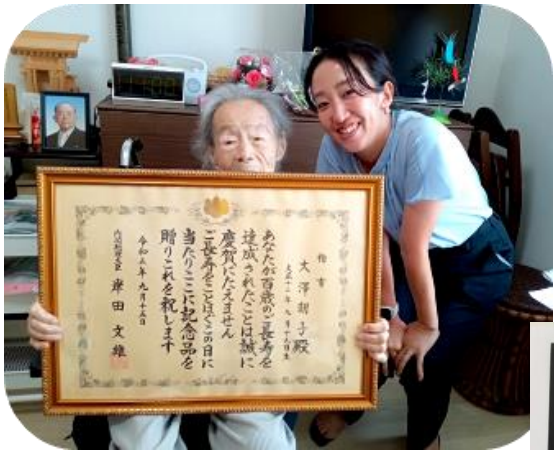 柏市
大澤 朝子殿
大正十二年九月十六日生
あなたが百歳のご長寿を
達成されたことは誠に
慶賀にたえません
ご長寿をことほぐこの日に
当たりここに記念品を
贈りこれを祝します
令和五年九月十五日
内閣総理大臣 岸田文雄